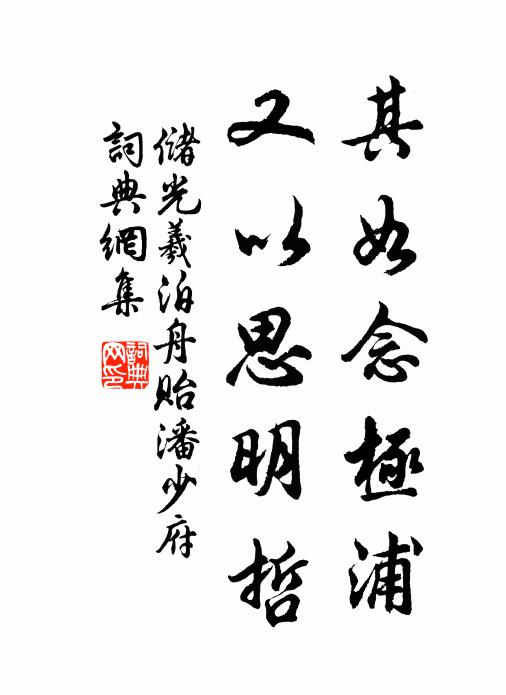 其如念極浦
又以思明哲
儲光羲泊舟貽潘少府
詞典網集
詞典網印